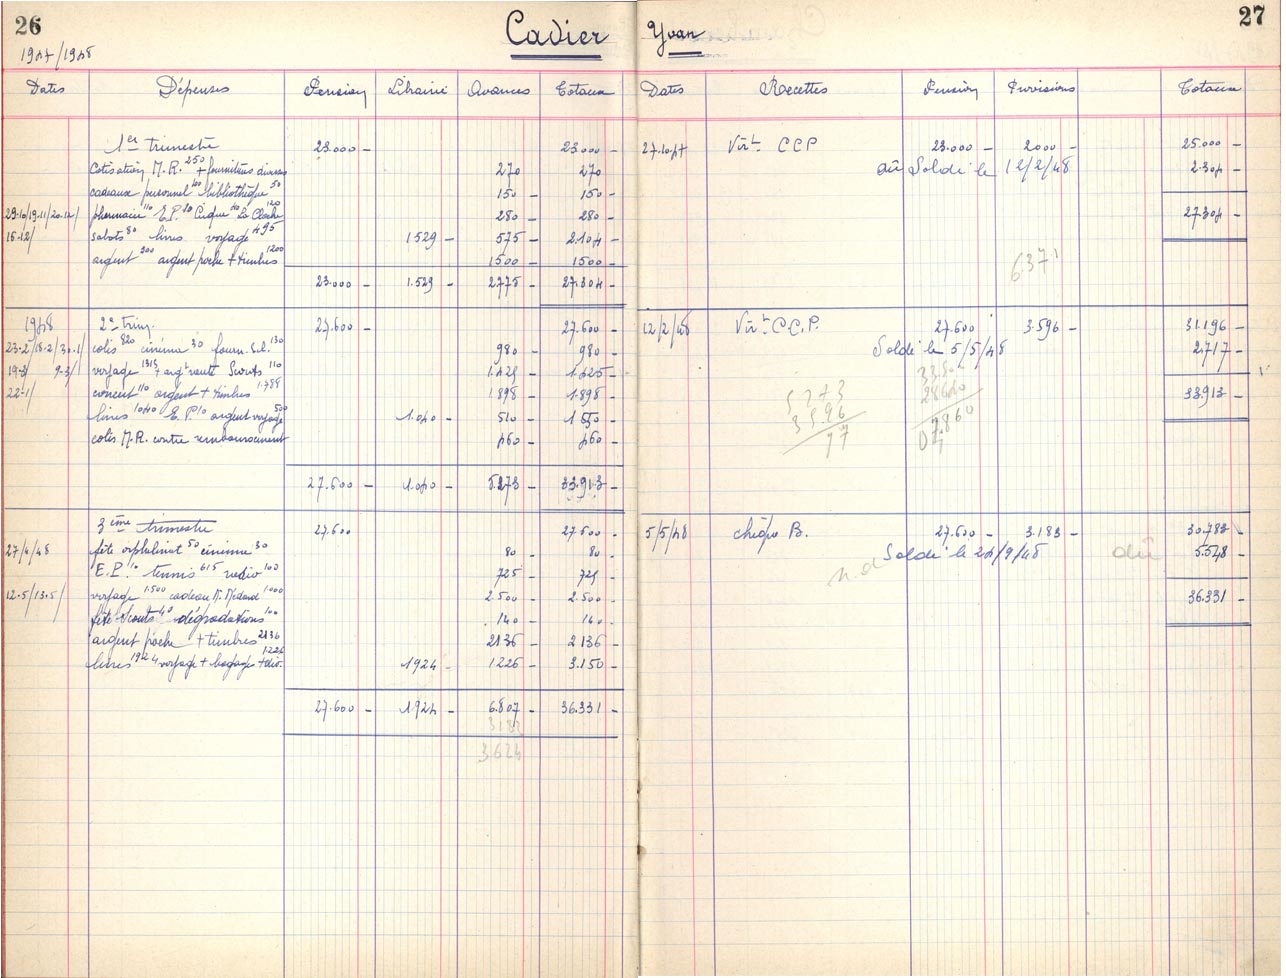 26
1947/1948
Cadier
Dates Dépenses Pension Librairie Avances Totaux
1er trimestre 23.000 - 23.000 -
Cotisation M.R. 250 + fournitures diverses 270 270 -
cadeaux personnel 100 bibliothèque 50 150 - 150 -
29.10/19.11/20.12/ pharmacie 110 E.P. 10 Cirque 40 La Cloche 120 280 - 280 -
16.12/ sabots 80 livres voyage 495 1529 - 575 - 2.104 -
argent 300 argent poche + timbres 1200 1500 - 1500 -
23.000 - 1.529 - 2775 - 27.304 -
1948 2e trim. 27.600 - 27.600 -
23-2/18-2/30.1/ colis 820 cinéma 30 fourn. Scl. 130 980 - 980 -
voyage 1315 + argt route Scouts 110 1.425 - 1.425 -
22-1/ concert 110 argent + timbres 1.788 1898 - 1.898 -
livres 1040 E.P. 10 argent voyage 500 1.040 - 510 - 1550 -
colis M.R. contre remboursement 460 - 460 -
27.600 - 1.040 - 5.273 - 33.913 -
3ème trimestre 27.600 27.600 -
27/4/48 fête orphelinat 50 cinéma 30 80 - 80 -
E.P. 10 tennis 615 radio 100 725 - 725 -
12.5/13.5/ voyage 1.500 cadeau M. Médard 1.000 2500 - 2.500 -
fête Scouts 40 dégradations 100 140 - 140 -
argent poche + timbres 2136 2136 - 2136 -
livres 1924 voyage + bagages + 1226 1924 - 1226 - 3.150 -
27.600 - 1924 - 6.807 - 36.331 -
3183
3624
27
Yvan
Dates Recettes Pension Provisions Totaux
27.10.47 Virt CCP 23.000 - 2000 - 25.000 -
dû Soldé le 12/2/48 2.304 -
27.304 -
6.371
12/2/48 Virt C.C.P. 27.600 3.596 - 31.196 -
Soldé le 5/5/48 2.717 -
33.913 -
5273
3596
77
28620
5/5/48 chèque B. 27.600 - 3.183 - 30.783 -
n.d Soldé le 24/9/48 dû 5.548 -
36.331 -